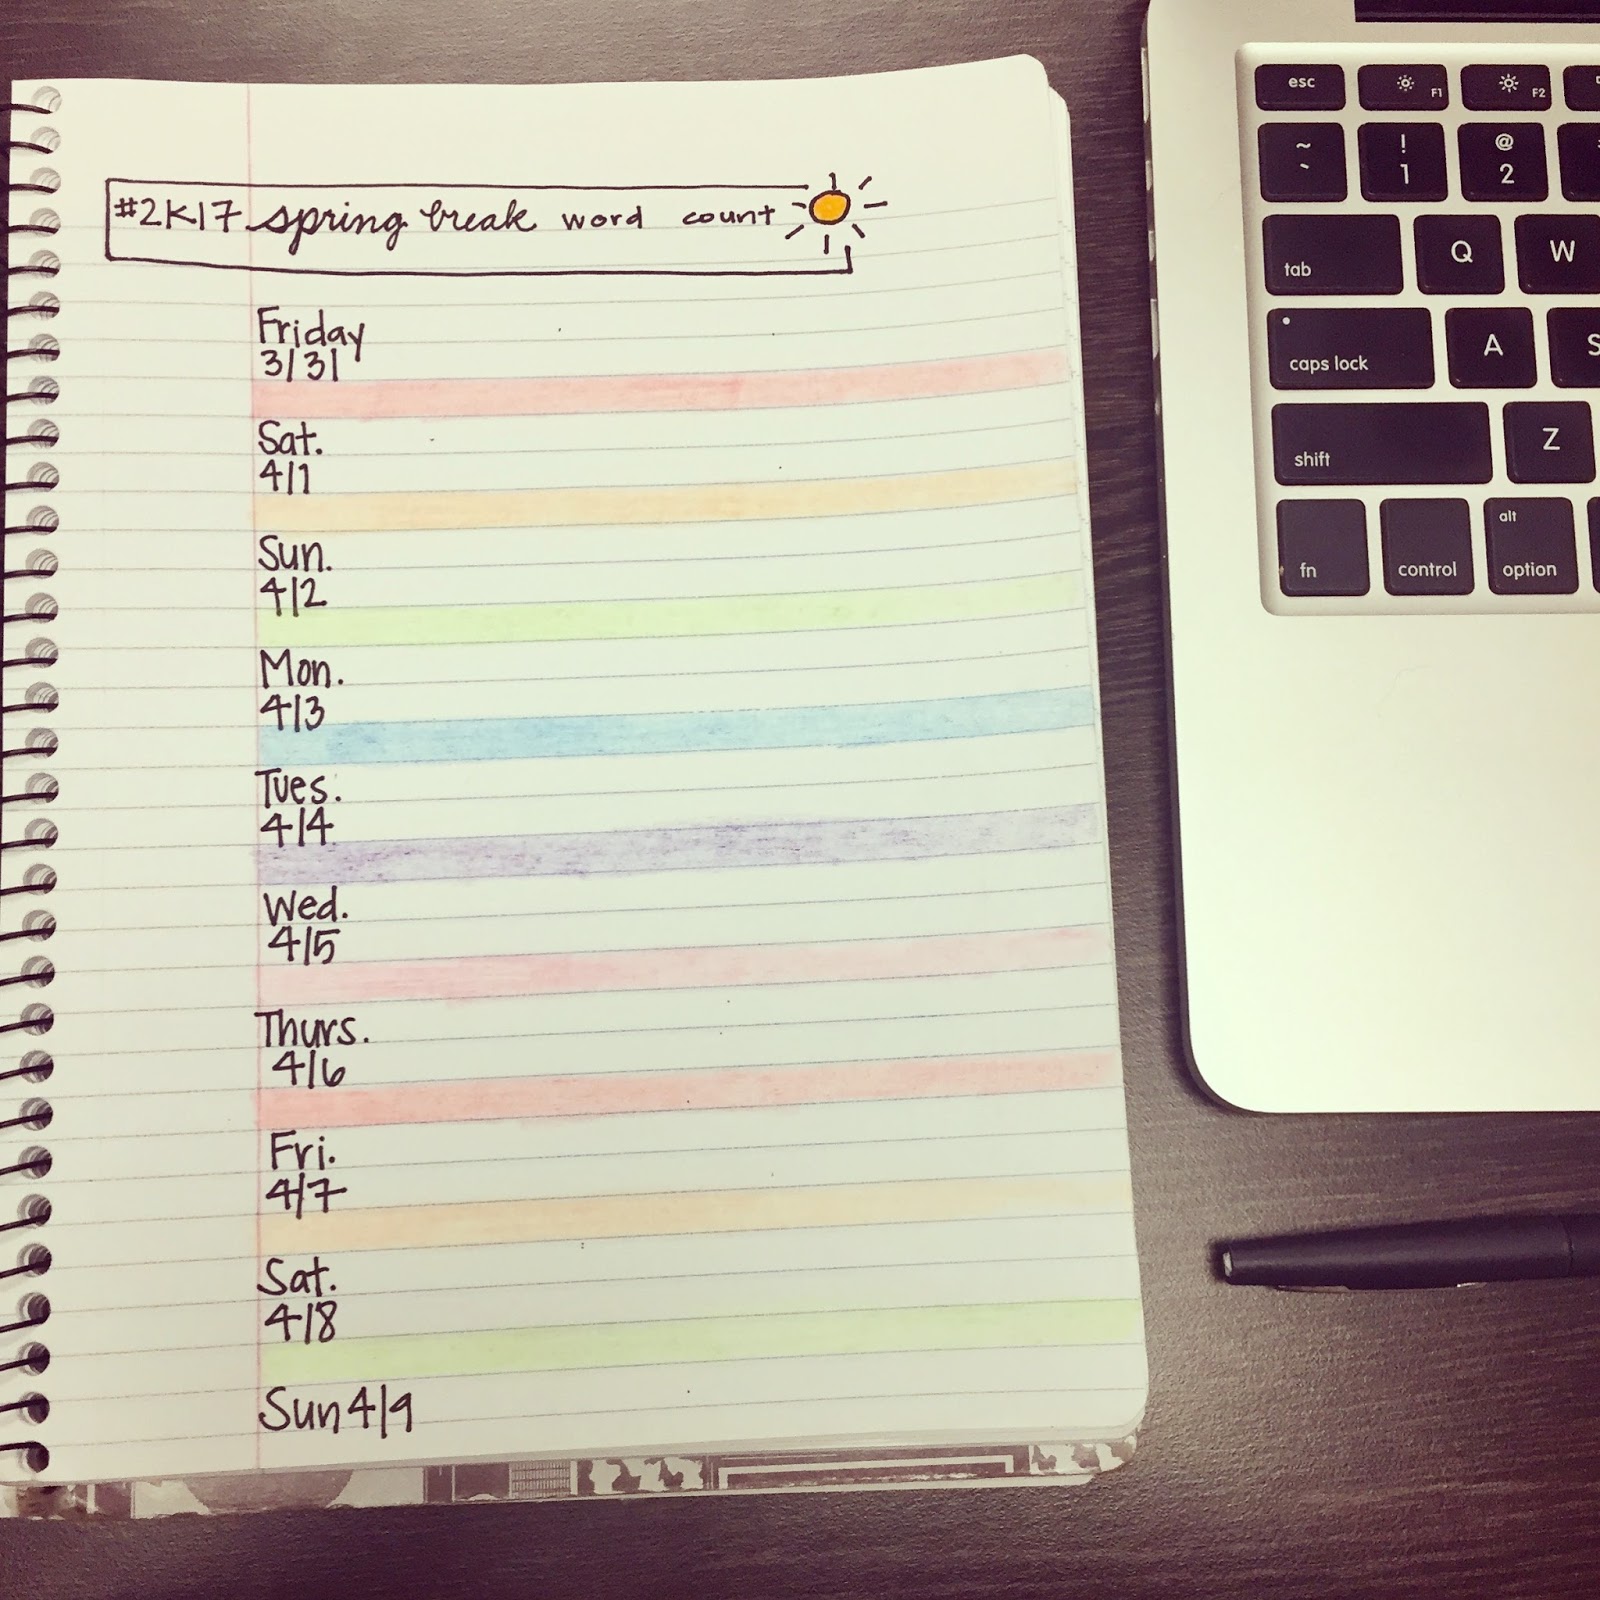 #2K17 spring break word count
Friday
3/31
Sat.
4/1
Sun.
4/2
Mon.
4/3
Tues.
4/4
Wed.
4/5
Thurs.
4/6
Fri.
4/7
Sat.
4/8
Sun 4/9
esc F1 F2
~ ! @
` 1 2
tab Q W
caps lock A S
shift Z
alt
fn control option